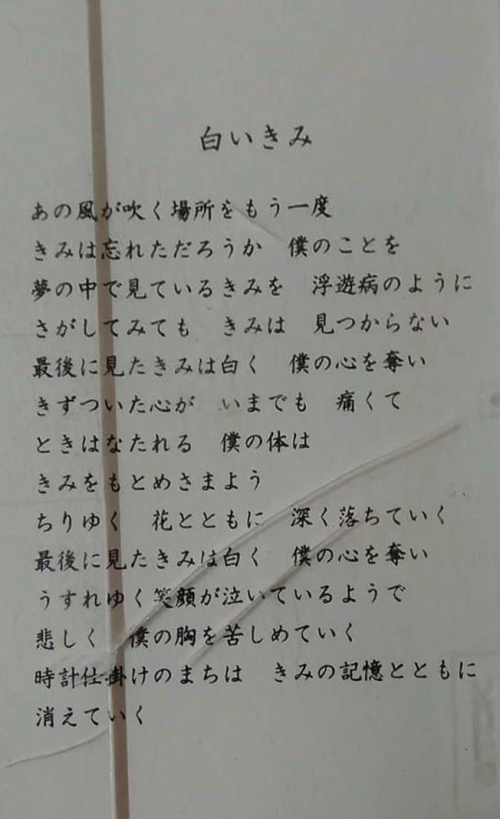 白いきみ
あの風が吹く場所をもう一度
きみは忘れただろうか　僕のことを
夢の中で見ているきみを　浮遊病のように
さがしてみても　きみは　見つからない
最後に見たきみは白く　僕の心を奪い
きずついた心が　いまでも　痛くて
ときはなたれる　僕の体は
きみをもとめさまよう
ちりゆく　花とともに　深く落ちていく
最後に見たきみは白く　僕の心を奪い
うすれゆく笑顔が泣いているようで
悲しく　僕の胸を苦しめていく
時計仕掛けのまちは　きみの記憶とともに
消えていく